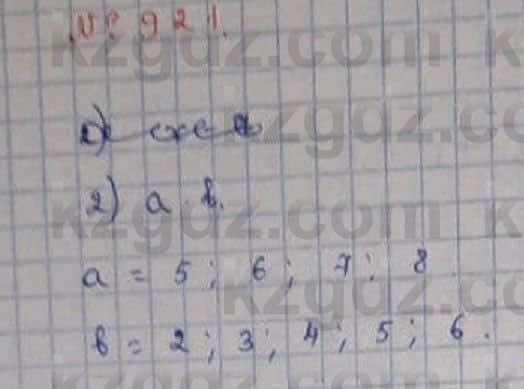 № 921.
2) a · b.
a = 5; 6; 7; 8
b = 2; 3; 4; 5; 6.
kzgdz.com